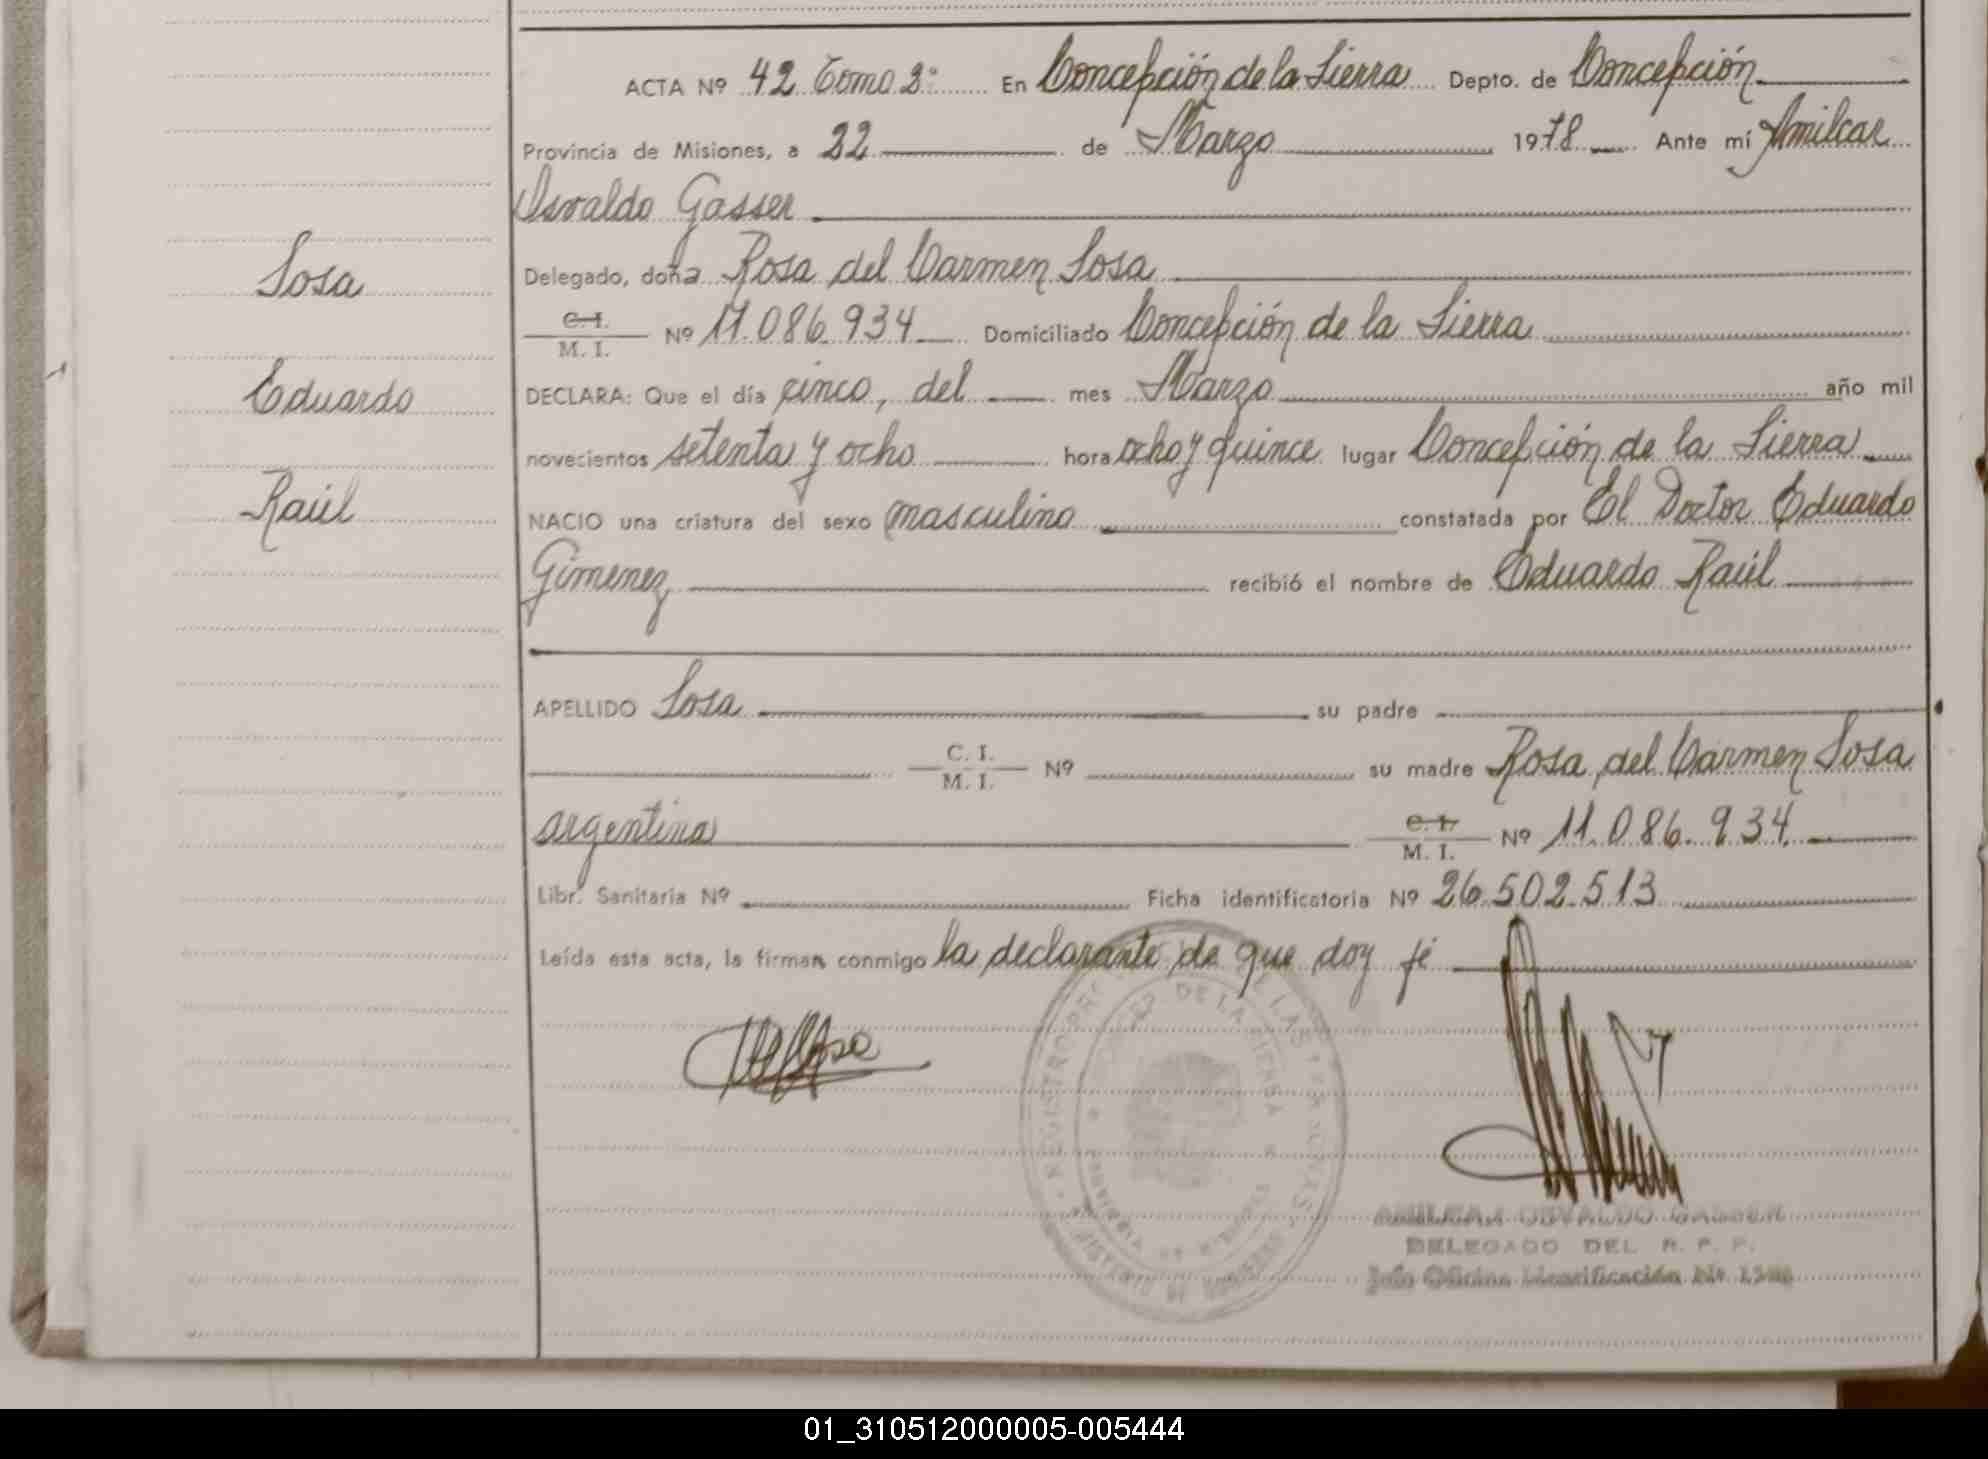 ACTA Nº 42 Tomo 2º En Concepción de la Sierra Depto. de Concepción
Provincia de Misiones, a 22 de Marzo 1978 Ante mí Amilcar
Osvaldo Gasser
Sosa
Delegado, doña Rosa del Carmen Sosa
C. I.
M. I. Nº 11.086.934 Domiciliado Concepción de la Sierra
Eduardo
DECLARA: Que el día cinco, del mes Marzo año mil
novecientos setenta y ocho hora ocho y quince lugar Concepción de la Sierra
Raúl
NACIO una criatura del sexo masculino constatada por El Doctor Eduardo
Gimenez recibió el nombre de Eduardo Raúl
APELLIDO Sosa su padre
C. I.
M. I. Nº su madre Rosa del Carmen Sosa
argentina C. I.
M. I. Nº 11.086.934
Libr. Sanitaria Nº Ficha identificatoria Nº 26.502.513
Leída esta acta, la firman conmigo la declarante de que doy fé
REGISTRO DE LAS PERSONAS
DE LA SIERRA
AMILCAR OSVALDO GASSER
DELEGADO DEL R. P. P.
Jefe Oficina Identificación Nº
01_310512000005-005444